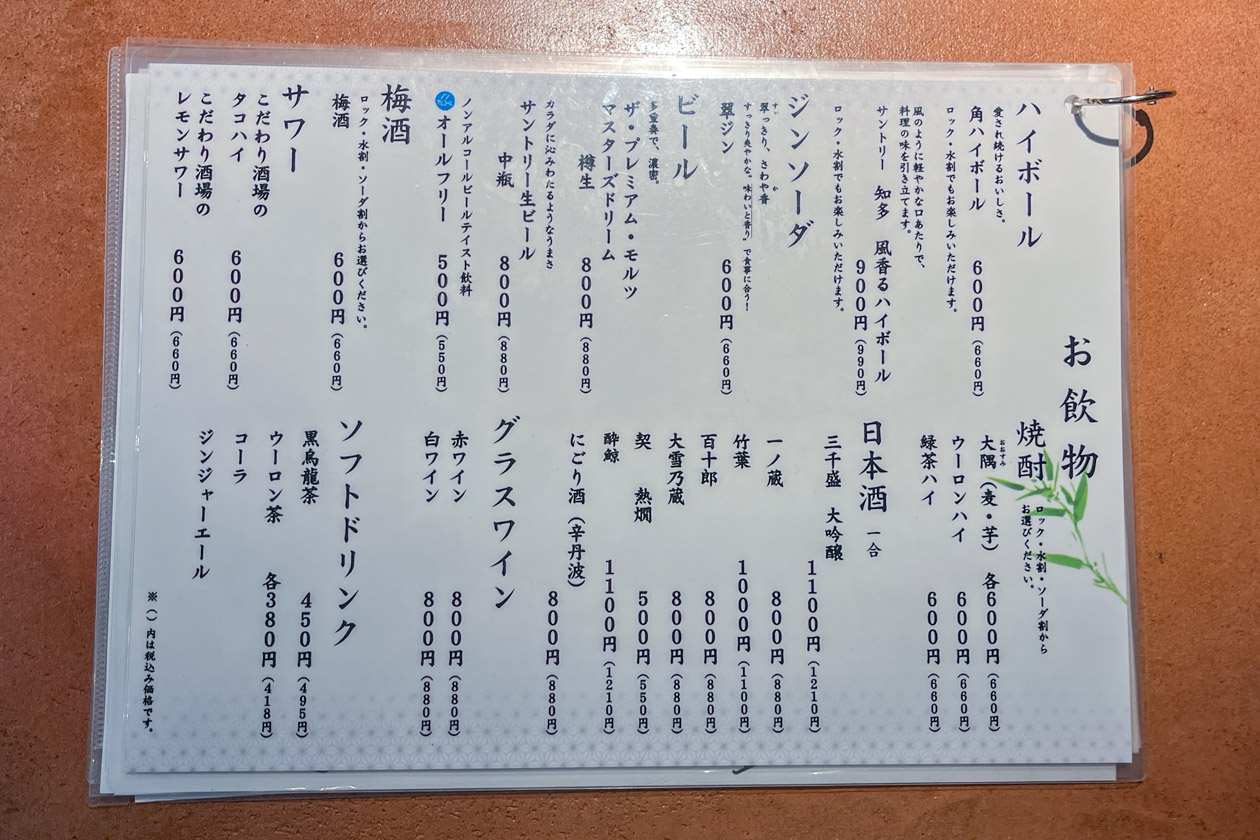 お飲物
ハイボール
愛され続けるおいしさ。
角ハイボール 600円(660円)
ロック・水割でもお楽しみいただけます。
風のように軽やかな口あたりで、
料理の味を引き立てます。
サントリー 知多 風香るハイボール
900円(990円)
ロック・水割でもお楽しみいただけます。
ジンソーダ
翠っきり、さわや香
すい か
すっきり爽やかな"味わいと香り"で食事に合う!
翠ジン 600円(660円)
ビール
多重奏で、濃密。
ザ・プレミアム・モルツ
マスターズドリーム
樽生 800円(880円)
カラダに沁みわたるようなうまさ
サントリー生ビール
中瓶 800円(880円)
ノンアルコールビールテイスト飲料
オールフリー 500円(550円)
梅酒
ロック・水割・ソーダ割からお選びください。
梅酒 600円(660円)
サワー
こだわり酒場の
タコハイ 600円(660円)
こだわり酒場の
レモンサワー 600円(660円)
焼酎 ロック・水割・ソーダ割から
お選びください。
おおすみ
大隅(麦・芋) 各600円(660円)
ウーロンハイ 600円(660円)
緑茶ハイ 600円(660円)
日本酒 一合
三千盛 大吟醸
1100円(1210円)
一ノ蔵 800円(880円)
竹葉 1000円(1100円)
百十郎 800円(880円)
大雪乃蔵 800円(880円)
契 熱燗 500円(550円)
酔鯨 1100円(1210円)
にごり酒(辛丹波)
800円(880円)
グラスワイン
赤ワイン 800円(880円)
白ワイン 800円(880円)
ソフトドリンク
黒烏龍茶 450円(495円)
ウーロン茶 各380円(418円)
コーラ
ジンジャーエール
※()内は税込み価格です。